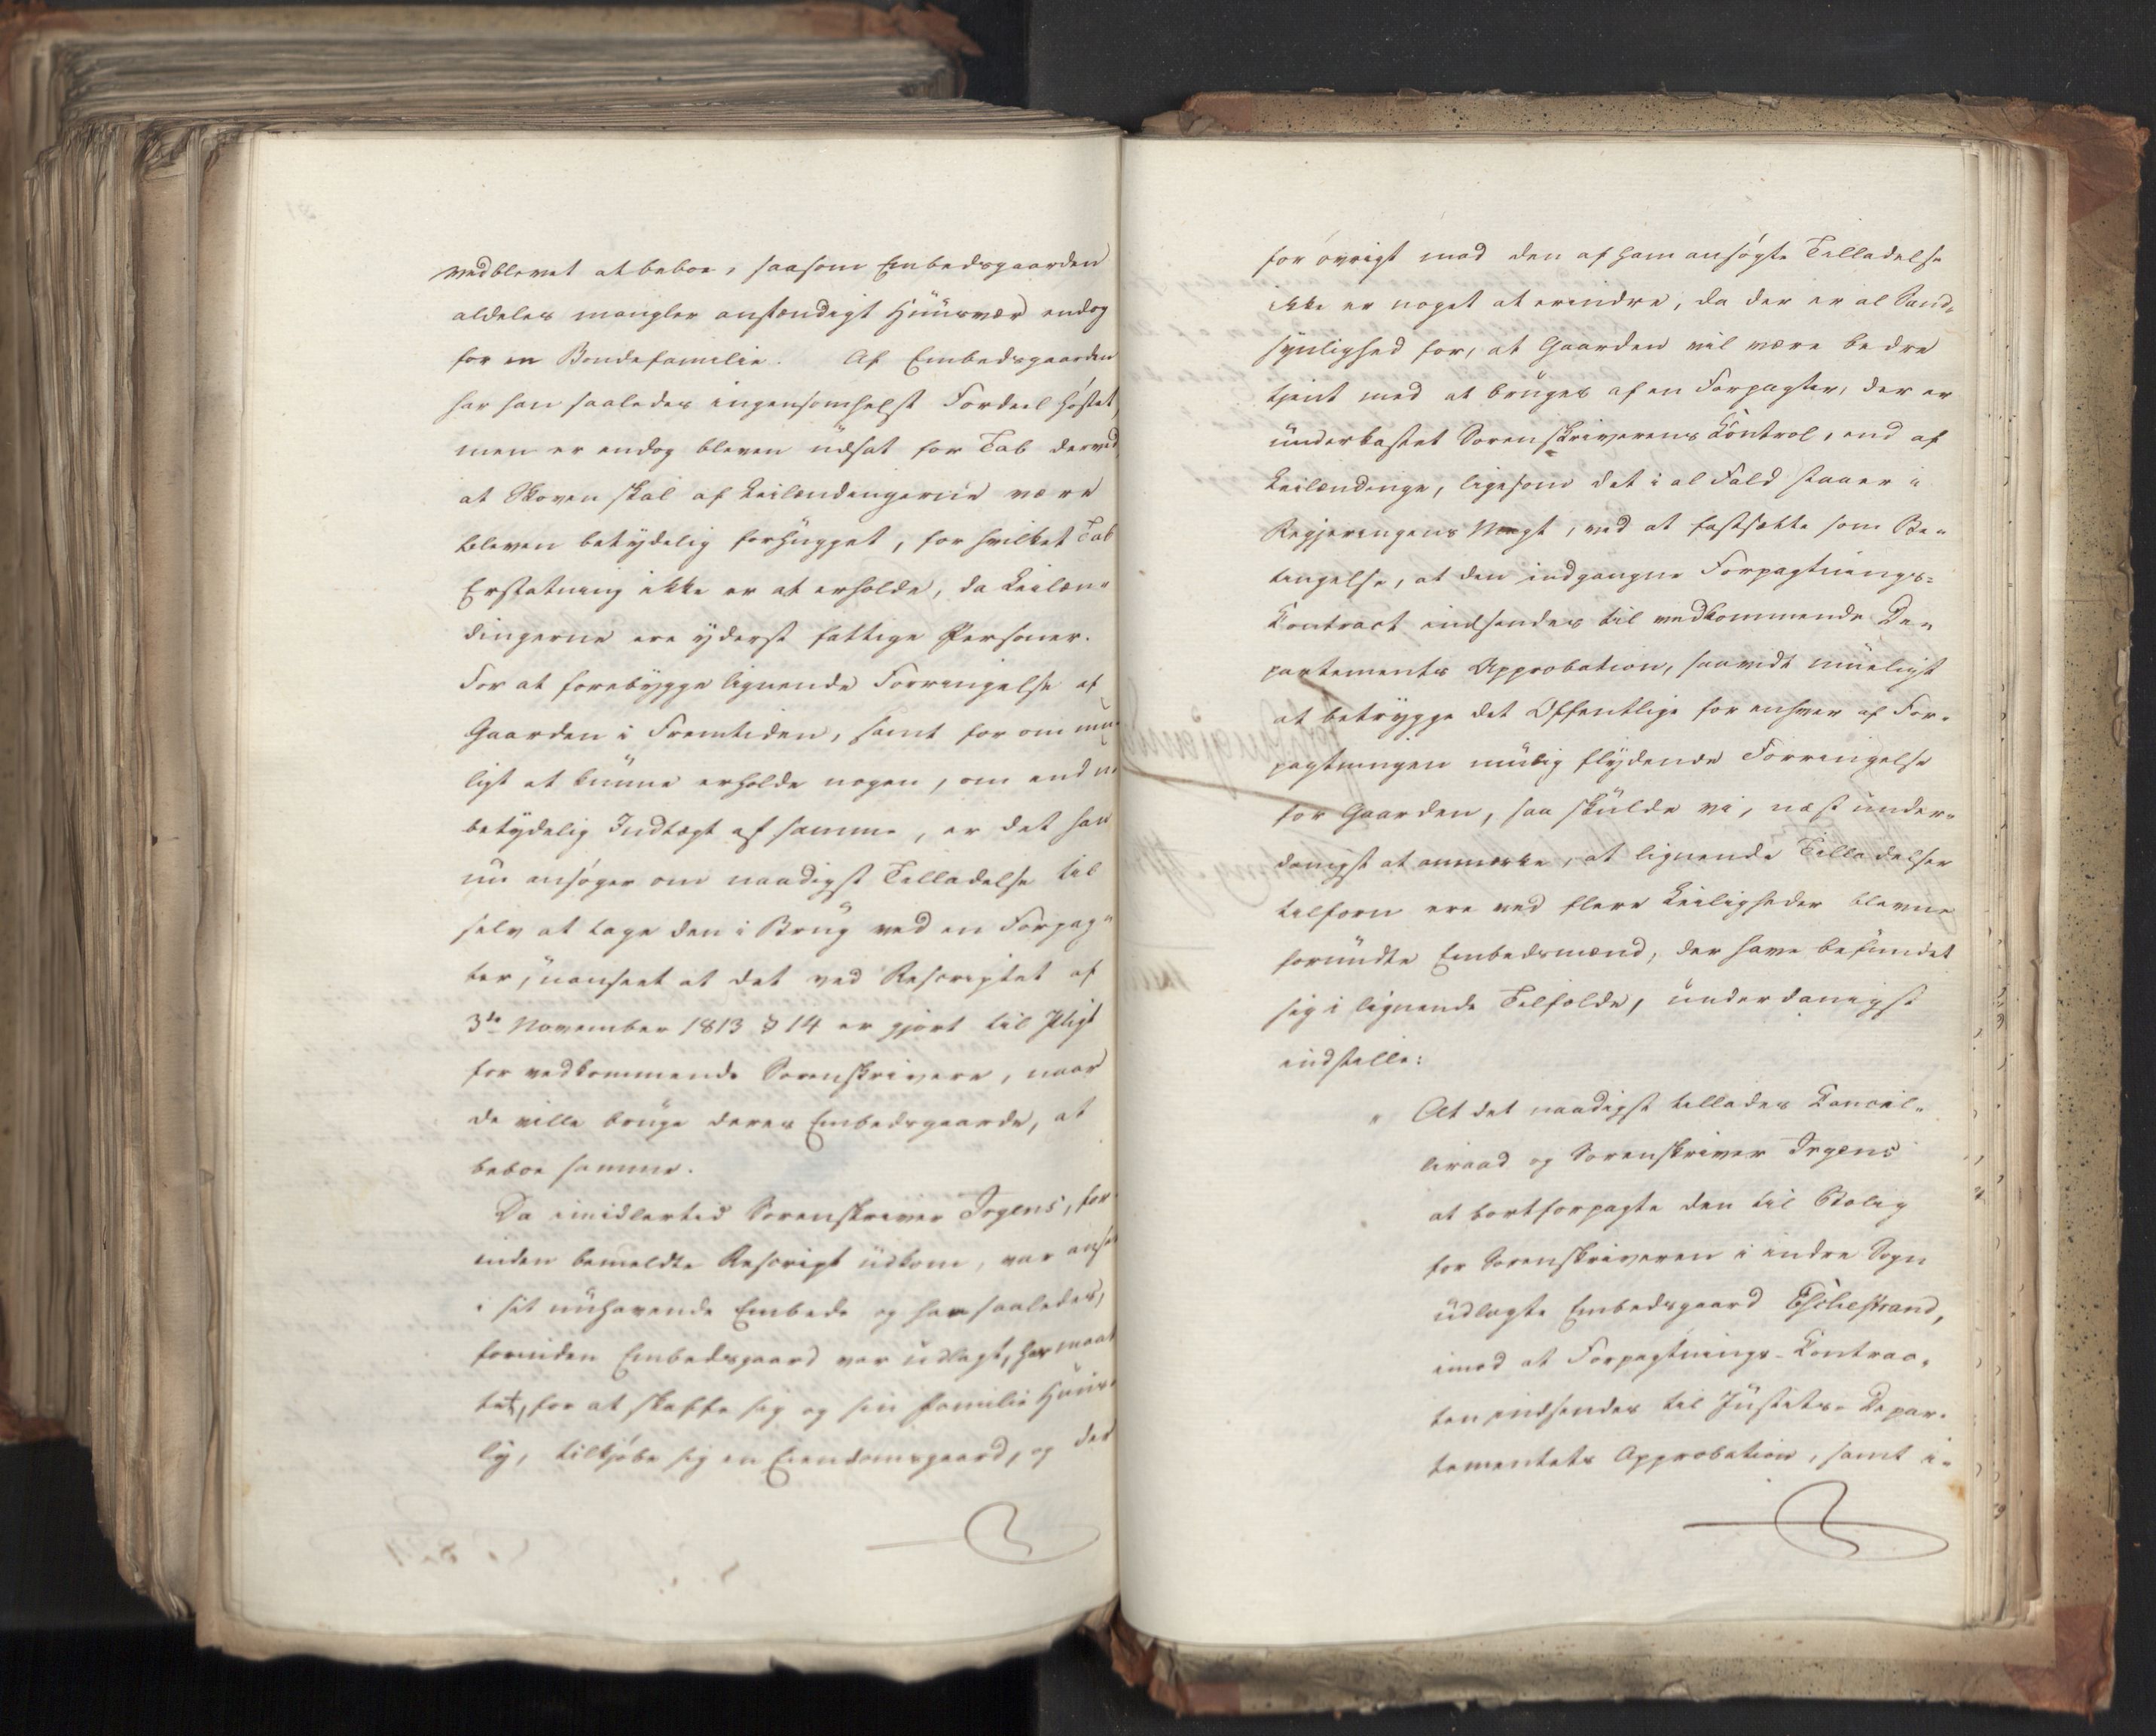 vedblevet at beboe, saasom Embedsgaarden
aldeles mangler anstændigt Huusvær endog
for en Bondefamilie. Af Embedsgaarden
har han saaledes ingensomhelst Fordeel høstet,
men er endog bleven udsat for Tab derved,
at Skoven skal af Leilændingerne være
bleven betydelig forhugget, for hvilket Tab
Erstatning ikke er at erholde, da Leilæn-
dingerne ere yderst fattige Personer.
For at forebygge lignende Forringelse af
Gaarden i Fremtiden, samt for om mue-
ligt at kunne erholde nogen, om end u-
betydelig Indtægt af samme, er det han
nu ansøger om naadigst Tilladelse til
selv at tage den i Brug ved en Forpag-
ter, uanseet at det ved Rescriptet af
3de November 1813 § 14 er gjort til Pligt
for vedkommende Sorenskrivere, naar
de ville bruge deres Embedsgaarde, at
beboe samme.
Da imidlertid Sorenskriver Irgens, for-
inden bemeldte Rescript udkom, var ansat
i sit nuhavende Embede og han saaledes,
forinden Embedsgaard var udlagt, har maat
tet, for at skaffe sig og sin Familie Huus-
ly, tilkjøbe sig en Eiendomsgaard, og der
for øvrigt mod den af ham ansøgte Tilladelse
ikke er noget at erindre, da der er al Sand-
synlighed for, at Gaarden vil være bedre
tjent med at bruges af en Forpagter, der er
underkastet Sorenskriverens Control, end af
Leilændinge, ligesom det i al Fald staaer i
Regjeringens Magt, ved at fastsætte som Be-
tingelse, at den indgangne Forpagtnings-
Contract indsendes til vedkommende De-
partements Approbation, saavidt mueligt
at betrygge det Offentlige for enhver af For-
pagtningen mulig flydende Forringelse
for Gaarden, saa skulde vi, næst under-
danigst at anmærke, at lignende Tilladelser
tilforn ere ved flere Leiligheder blevne
forundte Embedsmænd, der have befundet
sig i lignende Tilfælde, underdanigst
indstille:
" At det naadigst tillades Cancel-
liraad og Sorenskriver Irgens
at bortforpagte den til Bolig
for Sorenskriveren i indre Sogn
udlagte Embedsgaard Eschestrand,
imod at Forpagtnings-Contrac-
ten indsendes til Justits-Depar-
tementets Approbation, samt i-